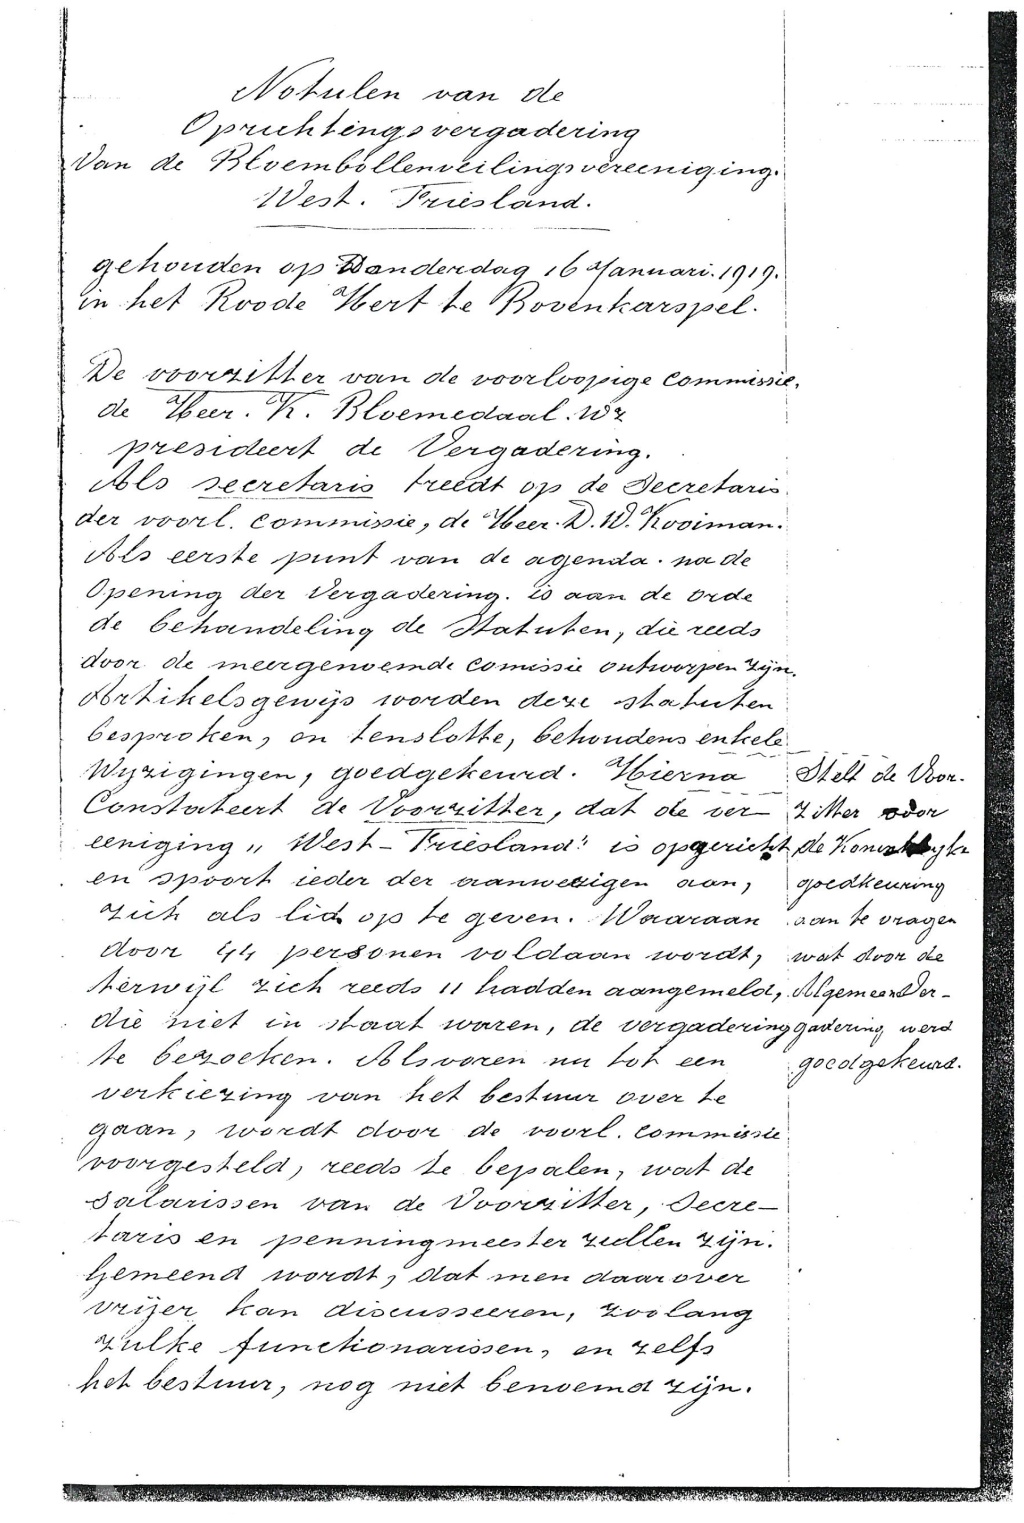 Notulen van de
Oprichtingsvergadering
Van de Bloembollenveilingsvereeniging.
West. Friesland.
gehouden op Donderdag 16 Januari. 1919.
in het Roode Hert te Bovenkarspel.
De voorzitter van de voorloopige Commissie,
de Heer. K. Bloemedaal. Wz
presideert de Vergadering.
Als secretaris treedt op de Secretaris
der voorl. Commissie, de Heer. D. W. Kooiman.
Als eerste punt van de agenda. na de
Opening der Vergadering. is aan de orde
de behandeling de Statuten, die reeds
door de meergenoemde Comissie ontworpen zijn.
Artikelsgewijs worden deze statuten
besproken, en tenslotte, behoudens enkele
Wijzigingen, goedgekeurd. Hierna
Constateert de Voorzitter, dat de ver-
eeniging „ West-Friesland" is opgericht
en spoort ieder der aanwezigen aan,
zich als lid op te geven. Waaraan
door 44 personen voldaan wordt,
terwijl zich reeds 11 hadden aangemeld,
die niet in staat waren, de vergadering
te bezoeken. Alsvoren nu tot een
verkiezing van het bestuur over te
gaan, wordt door de voorl. Commissie
voorgesteld, reeds te bepalen, wat de
salarissen van de Voorzitter, Secre-
taris en penningmeester zullen zijn.
Gemeend wordt, dat men daarover
vrijer kan discusseeren, zoolang
zulke functionarissen, en zelfs
het bestuur, nog niet benoemd zijn.
Stelt de Voor-
zitter voor
de Koninklijke
goedkeuring
aan te vragen
wat door de
Algemeen Ver-
gadering werd
goedgekeurd.